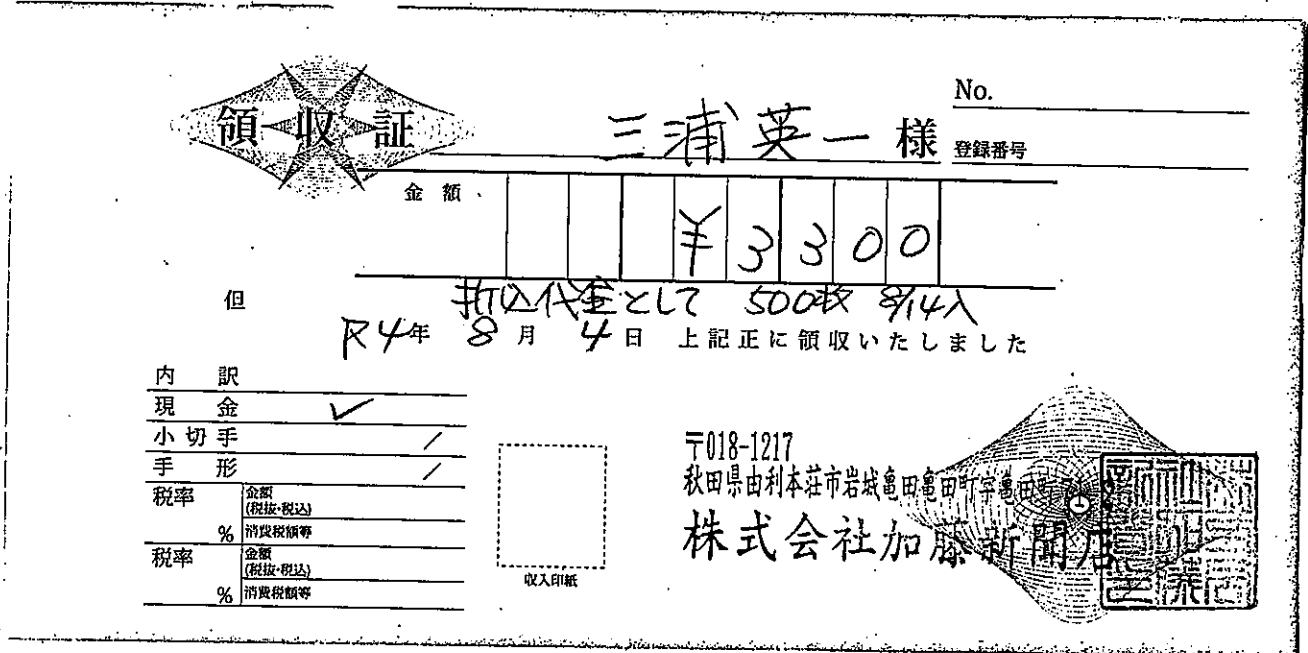 領収証
三浦英一 様
No.
登録番号
金額
¥3300
但 折込代金として 500枚 8/14入
R4年 8月 4日 上記正に領収いたしました
内訳
現金 ✓
小切手 /
手形 /
税率 % 金額(税抜・税込)
消費税額等
税率 % 金額(税抜・税込)
消費税額等
収入印紙
〒018-1217
秋田県由利本荘市岩城亀田亀田町字亀田町
株式会社加藤新聞店